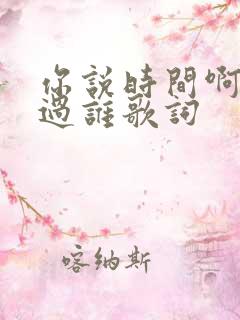 你說時間啊
過誰歌詞
喀納斯